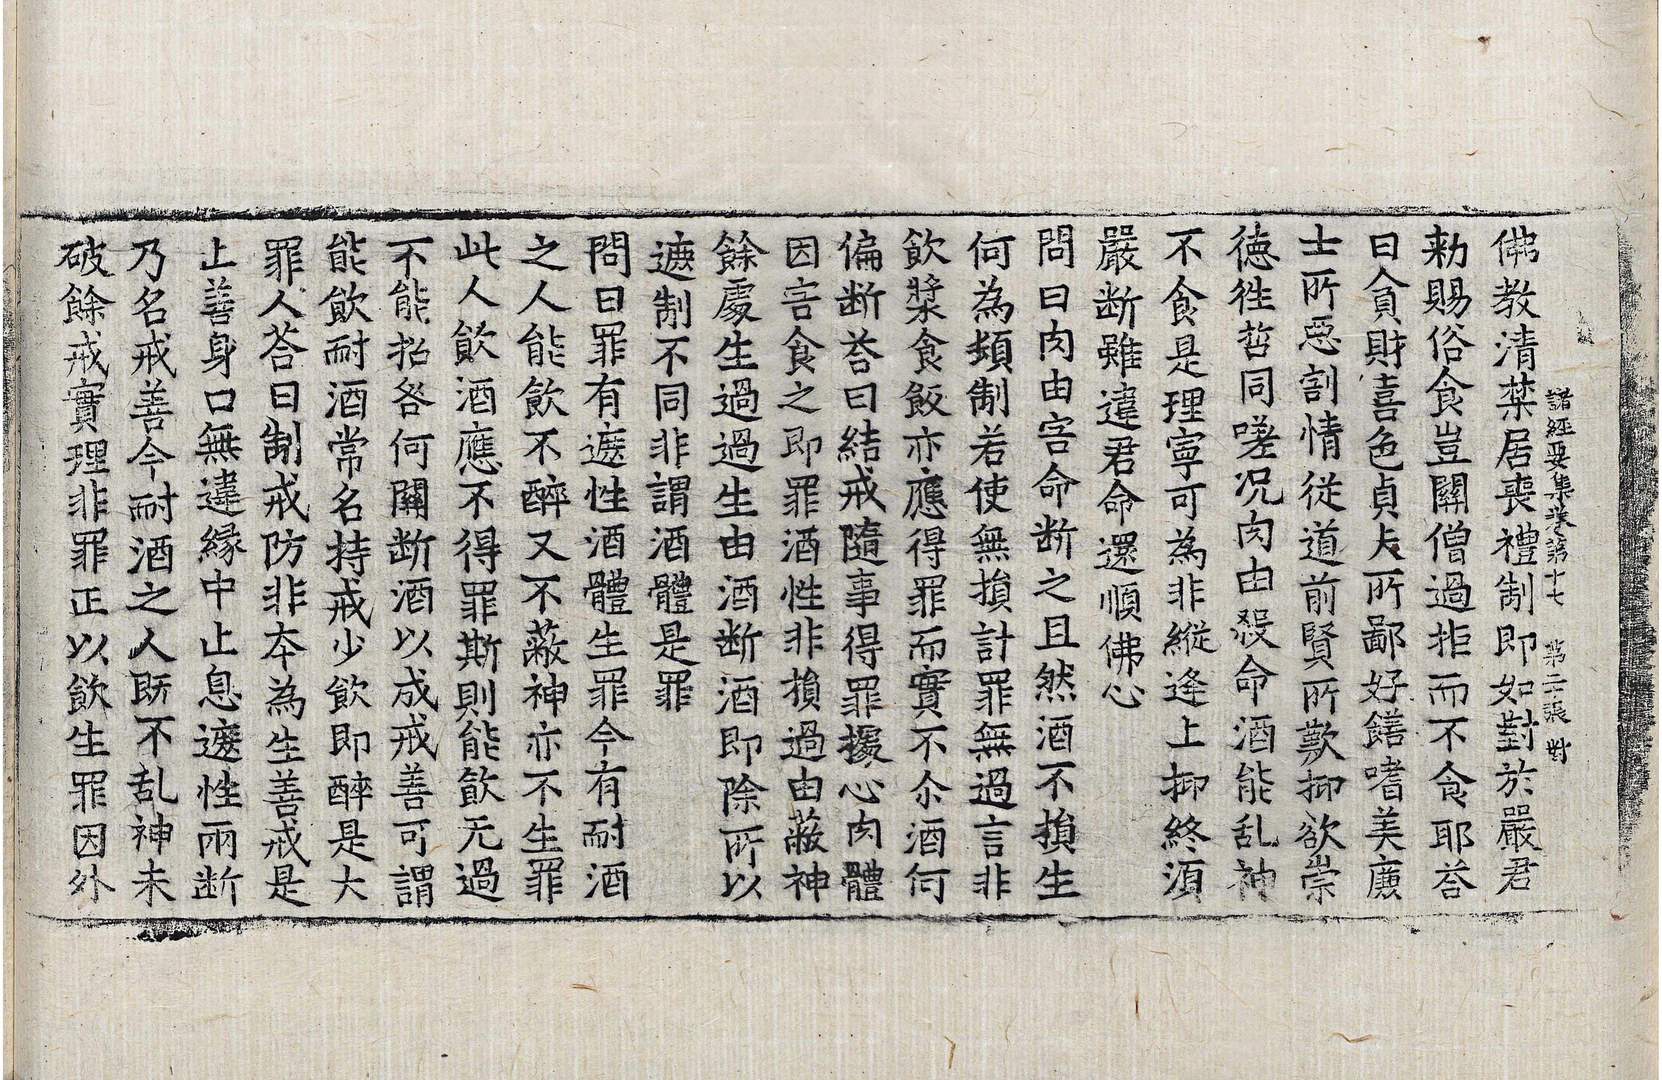 諸經要集卷第十七 第二張 對
佛教清禁居喪禮制即如對於嚴君
勑賜俗食豈關僧過拒而不食耶荅
曰貪財喜色貞夫所鄙好饍嗜美廉
士所惡割情從道前賢所歎抑欲崇
德徃哲同嗟况肉由殺命酒能乱神
不食是理寧可為非縱逄上抑終須
嚴断雖違君命還順佛心
問曰肉由害命断之且然酒不損生
何為頻制若使無損計罪無過言非
飲漿食飯亦應得罪而實不尒酒何
偏断荅曰結戒隨事得罪據心肉體
因害食之即罪酒性非損過由蔽神
餘處生過過生由酒断酒即除所以
遮制不同非謂酒體是罪
問曰罪有遮性酒體生罪今有耐酒
之人能飲不醉又不蔽神亦不生罪
此人飲酒應不得罪斯則能飲无過
不能招咎何關断酒以成戒善可謂
能飲耐酒常名持戒少飲即醉是大
罪人荅曰制戒防非夲為生善戒是
止善身口無違緣中止息遮性兩断
乃名戒善今耐酒之人旣不乱神未
破餘戒實理非罪正以飲生罪因外